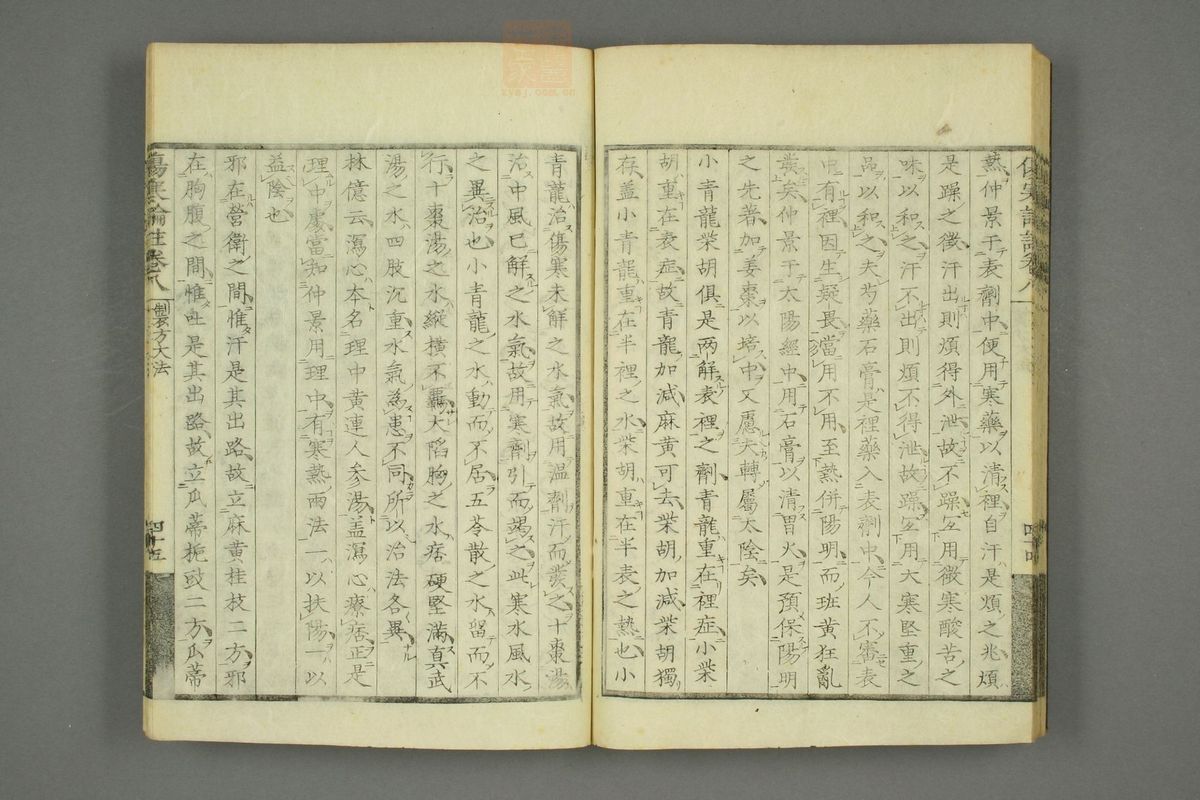 熱仲景于表劑中便用寒藥以清裡自汗是煩之兆煩
是躁之徵汗出則煩得外泄故不躁宜用微寒酸苦之
味以和之汗不出則煩不得泄故躁宜用大寒堅重之
品以和之夫芍藥石膏是裡藥入表劑中今人不審表
中有裡因生疑畏當用不用至熱併陽明而班黃狂亂
發矣仲景于太陽經中用石膏以清胃火是預保陽明
之先著加姜棗以培中又慮夫轉屬太陰矣
小青龍柴胡俱是兩解表裡之劑青龍重在裡症小柴
胡重在表症故青龍加減麻黃可去柴胡加減柴胡獨
存蓋小青龍重在半裡之水柴胡重在半表之熱也小
青龍治傷寒未解之水氣故用溫劑汗而發之十棗湯
治中風已解之水氣故用寒劑引而竭之此寒水風水
之異治也小青龍之水動而不居五苓散之水留而不
行十棗湯之水縱橫不羈大陷胸之水痞硬堅滿真武
湯之水四肢沉重水氣為患不同所以治法各異
林億云瀉心本名理中黃連人參湯蓋瀉心療痞正是
理中處當知仲景用理中有寒熱兩法一以扶陽一以
益陰也
邪在營衛之間惟汗是其出路故立麻黃桂枝二方邪
在胸腹之間惟吐是其出路故立瓜蒂梔豉二方瓜蒂
傷寒論註卷八 製方大法 四十五
zysj.com.cn